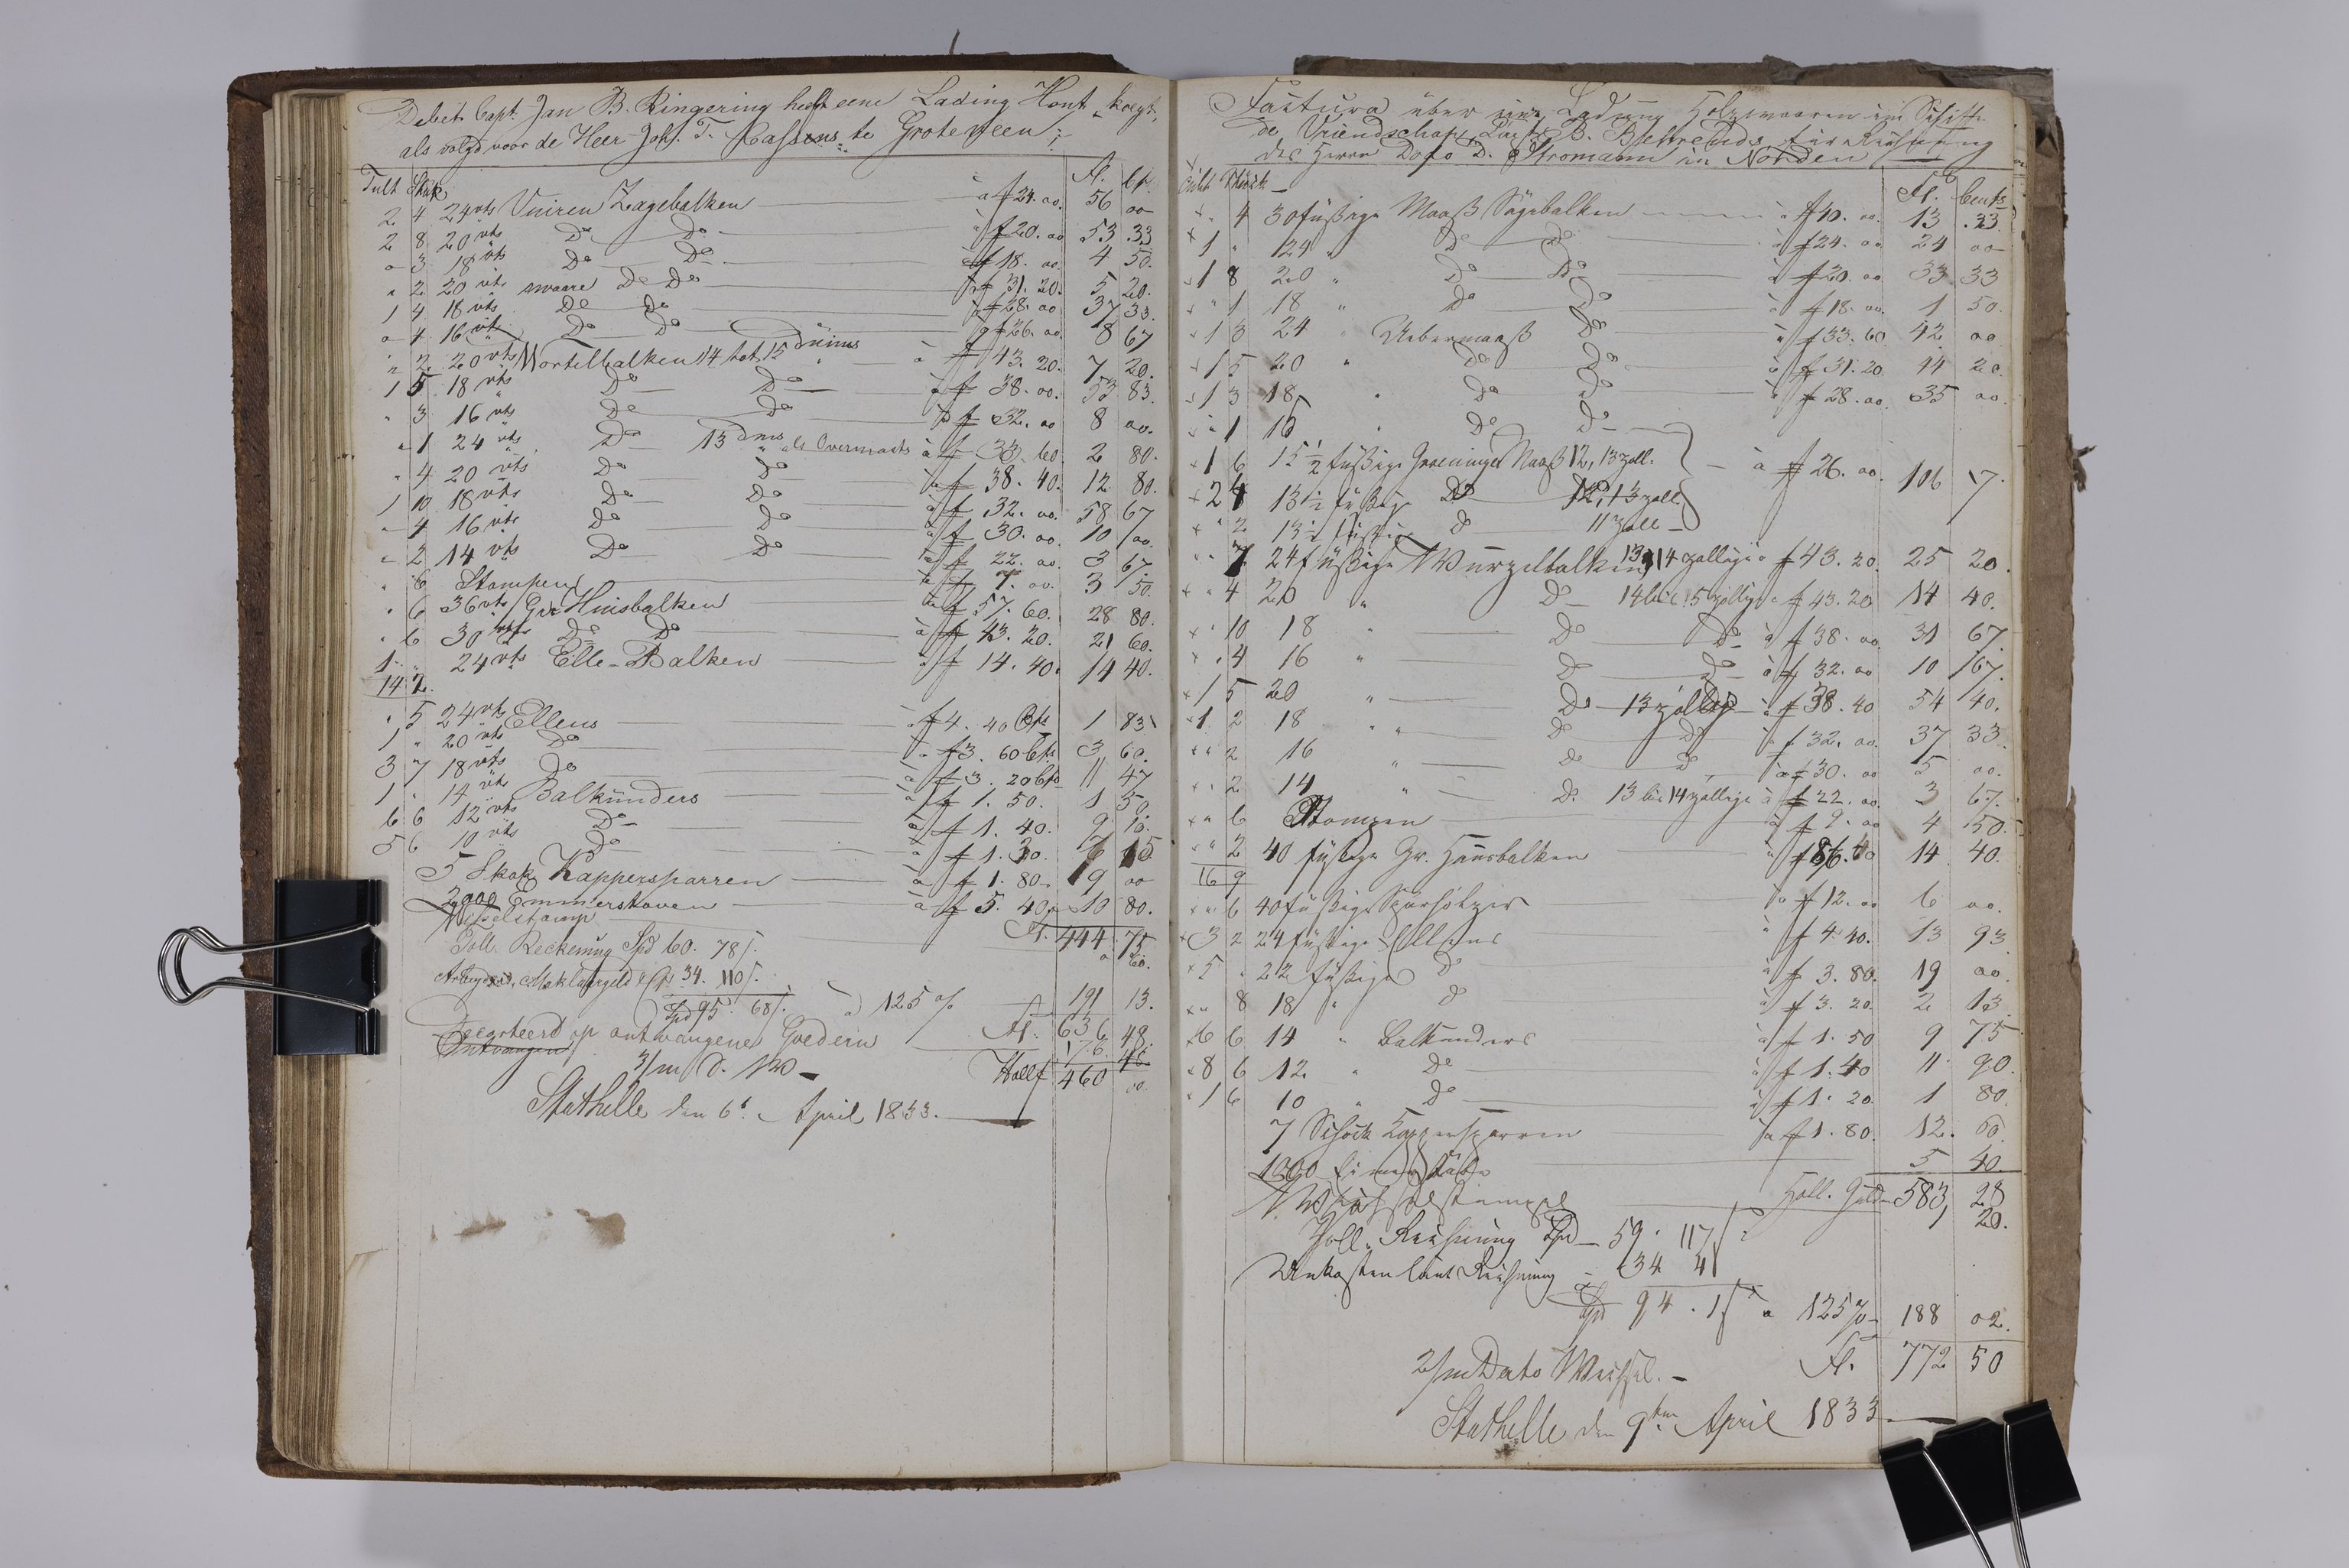 Debet Capt. Jan B. Ringering heeft eene Lading Hout kocyt,
als volgd voor de Heer Joh. T. Cassens te Groteveen;
Tult Stük Fl. Ct.
2 4 24 vts Vuiren Zagebalken à f 24. 00. 56 00
2 8 20 vts Do Do à f 20. 00 53 33
" 3 18 vts Do Do à f 18. 00. 4 50.
" 2 20 vts swaare Do Do à f 31. 20. 5 20.
1 4 18 vts Do Do à f 28. 00 37 33.
" 4 16 vts Do Do à f 26. 00. 8 67
" 2 20 vts Wortelbalken 14 tot 15 duims à f 43. 20. 7 20.
1 5 18 vts Do Do à f 38. 00. 53 83.
" 3 16 vts Do Do à f 32. 00 8 00.
" 1 24 vts Do 13 dms als Overmaats à f 33. 60 2 80.
" 4 20 vts Do Do à f 38. 40. 12 80.
1 10 18 vts Do Do à f 32. 00. 58 67
" 4 16 vts Do Do à f 30. 00. 10 00.
" 2 14 vts Do Do à f 22. 00. 3 67.
" 6 Stampen à f 7. 00. 3 50.
" 6 36 vts Gr. Huisbalken à f 57. 60. 28 80.
" 6 30 vts Do Do à f 43. 20. 21 60.
1 " 24 vts Elle-Balken à f 14. 40. 14 40.
14 2.
" 5 24 vts Ellens à f 4. 40 Cts 1 83
1 " 20 vts Do à f 3. 60 Cts. 3 60.
3 7 18 vts Do à f 3. 20 Cts 11 47
1 " 14 vts Balkünders à f 1. 50. 1 50.
6 6 12 vts Do à f 1. 40. 9 10.
5 6 10 vts Do à f 1. 30. 7 15
5 Skok Kappersparren à f 1. 80. 9 00
2000 Emmerstaven à f 5. 40 10 80.
Fl. 444. 75
Wisselstamp " 60.
Toll. Reckening Spd 60. 78 ſ.
Arbeyds, Maklargeld 34. 110 ſ.
Spd 95. 68 ſ. à 125 % 191 13.
Fl. 636 48.
Decorteerd op ontvangene Goederen 176. 48
3/m d. No Hollf 460 00.
Stathelle den 6t. April 1833.
Factura über eine Ladung Holzwaaren im Schiffe
de Vriendschap, Capt. B. Behrends für Rechnung
des Herrn Dodo D. Stromann in Norden
Tült Stück Fl. Cents
" 4 30füßige Maaß Sägebalken à f 40. 00. 13 .33.
1 " 24 " Do Do à f 24. 00 24 00
1 8 20 " Do Do à f 20. 00 33 33
" 1 18 " Do Do à f 18. 00. 1 50.
1 3 24 " Uebermaaß Do à f 33. 60. 42 00
1 5 20 " Do Do à f 31. 20. 44 20.
1 3 18 " Do Do à f 28. 00. 35 00.
" 1 16 " Do Do
1 6 15 1/2 füßige Groeninger Maaß 12, 13 zoll. à f 26. 00. 106 17.
2 4 13 1/2 füßig Do 12, 13 zoll
" 2 13 1/2 füßig Do 11 zoll
" 7 24 füßige Wurzelbalken 13, 14 zollige à f 43. 20. 25 20.
" 4 20 " Do 14 bis 15 zollige à f 43. 20 14 40.
" 10 18 " Do Do à f 38. 00 31 67.
" 4 16 " Do Do à f 32. 00 10 67.
1 5 20 " Do 13 zollig à f 38. 40 54 40.
1 2 18 " Do Do à f 32. 00. 37 33.
" 2 16 " Do Do à f 30. 00 5 00.
" 2 14 " Do. 13 bis 14 zollige à f 22. 00. 3 67.
" 6 Stampen à f 9. 00 4 50.
" 2 40 füßige Gr. Hausbalken à f 86. 40 14 40.
16 9
" 6 40 füßige Sparhölzer à f 12. 00 6 00.
3 2 24 füßige Ellens à f 4. 40. 13 93
5 " 22 füßige Do à f 3. 80. 19 00.
" 8 18 " Do à f 3. 20. 2 13
6 6 14 " Balkenders à f 1. 50 9 75
8 6 12. " Do à f 1. 40 11 90.
1 6 10 " Do à f 1. 20. 1 80.
7 Schock Kappensparren à f 1. 80. 12. 60.
1000 Eimerstäbe 5 40.
Holl. Guld. 583, 28
Wechselstempel 20.
Zoll. Rechnung Spd 59. 117 ſ
Unkosten laut Rechnung 34 4 ſ
Spd 94. 1 ſ à 125% 188 02.
2/m Dato Wechsel. Fl. 772 50
Stathelle den 9ten April 1833